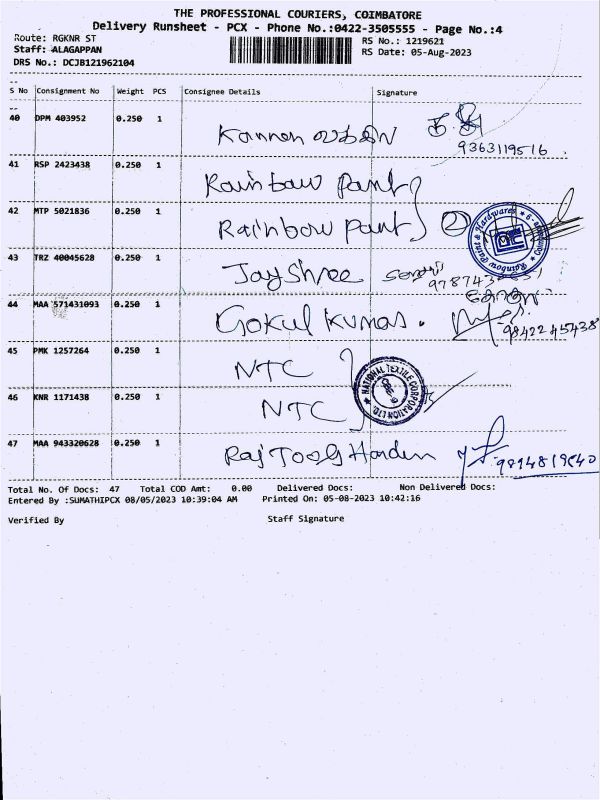 THE PROFESSIONAL COURIERS, COIMBATORE
Delivery Runsheet - PCX - Phone No.:0422-3505555 - Page No.:4
Route: RGKNR ST RS No.: 1219621
Staff: ALAGAPPAN RS Date: 05-Aug-2023
DRS No.: DCJB121962104
S No Consignment No Weight PCS Consignee Details Signature
40 DPM 403952 0.250 1 Kannan
9363119516
41 RSP 2423438 0.250 1 Rainbow Paint
42 MTP 5021836 0.250 1 Rainbow Paint 2
Rainbow Paint & Hardwares
43 TRZ 40045628 0.250 1 Jay Shree
44 MAA 571431093 0.250 1 Gokul Kumar.
9842245438
45 PMK 1257264 0.250 1 NTC
NATIONAL TEXTILE CORPORATION LTD.
46 KNR 1171438 0.250 1 NTC
47 MAA 943320628 0.250 1 Raj Tools
Total No. Of Docs: 47 Total COD Amt: 0.00 Delivered Docs: Non Delivered Docs:
Entered By :SUMATHIPCX 08/05/2023 10:39:04 AM Printed On: 05-08-2023 10:42:16
Verified By Staff Signature